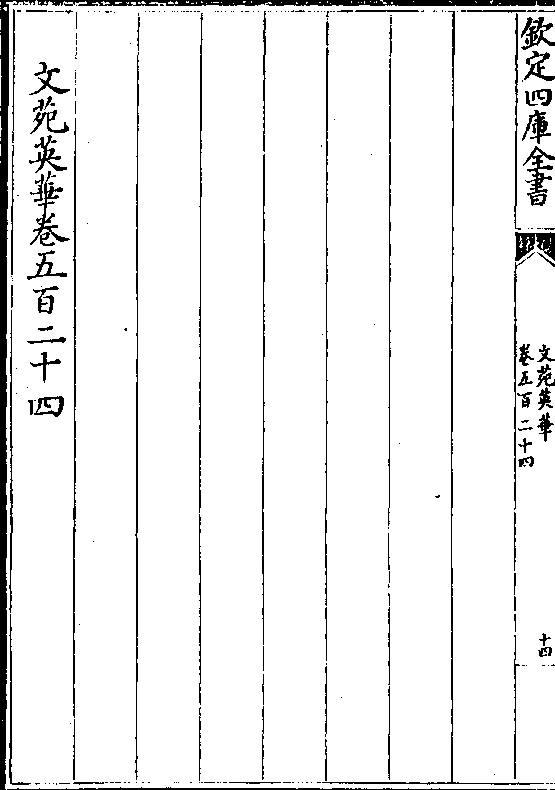 欽定四庫全書
文苑英華
卷五百二十四
十四
文苑英華卷五百二十四